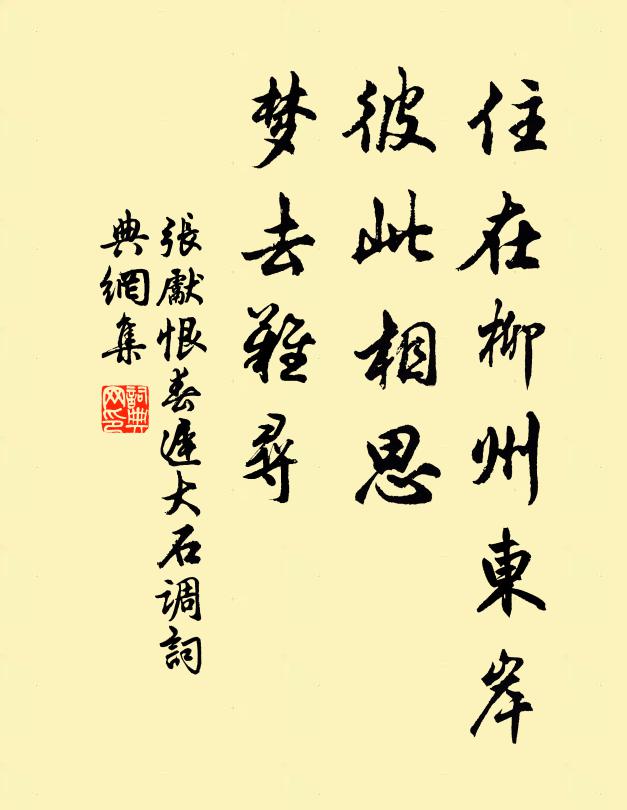 住在柳州東岸
彼此相思
梦去難尋
張獻恨春遲大石調詞
典網集
詞典
网印